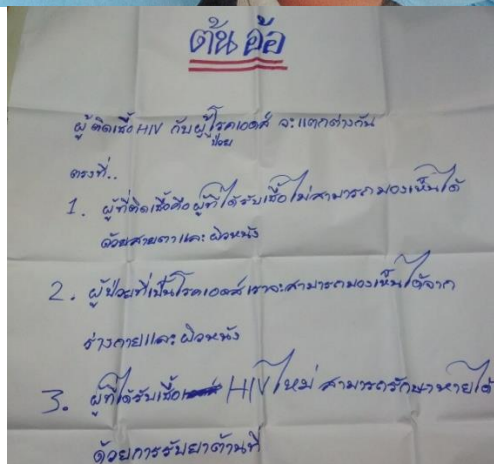 ต้นอ้อ
ผู้ติดเชื้อ HIV กับผู้ป่วยโรคเอดส์ จะแตกต่างกัน
ตรงที่..
1. ผู้ที่ติดเชื้อคือผู้ที่ได้รับเชื้อไม่สามารถมองเห็นได้
ด้วยสายตาและผิวหนัง
2. ผู้ป่วยที่เป็นโรคเอดส์เราจะสามารถมองเห็นได้จาก
ร่างกายและผิวหนัง
3. ผู้ที่ได้รับเชื้อ HIV ใหม่ สามารถรักษาหายได้
ด้วยการรับยาต้านที่